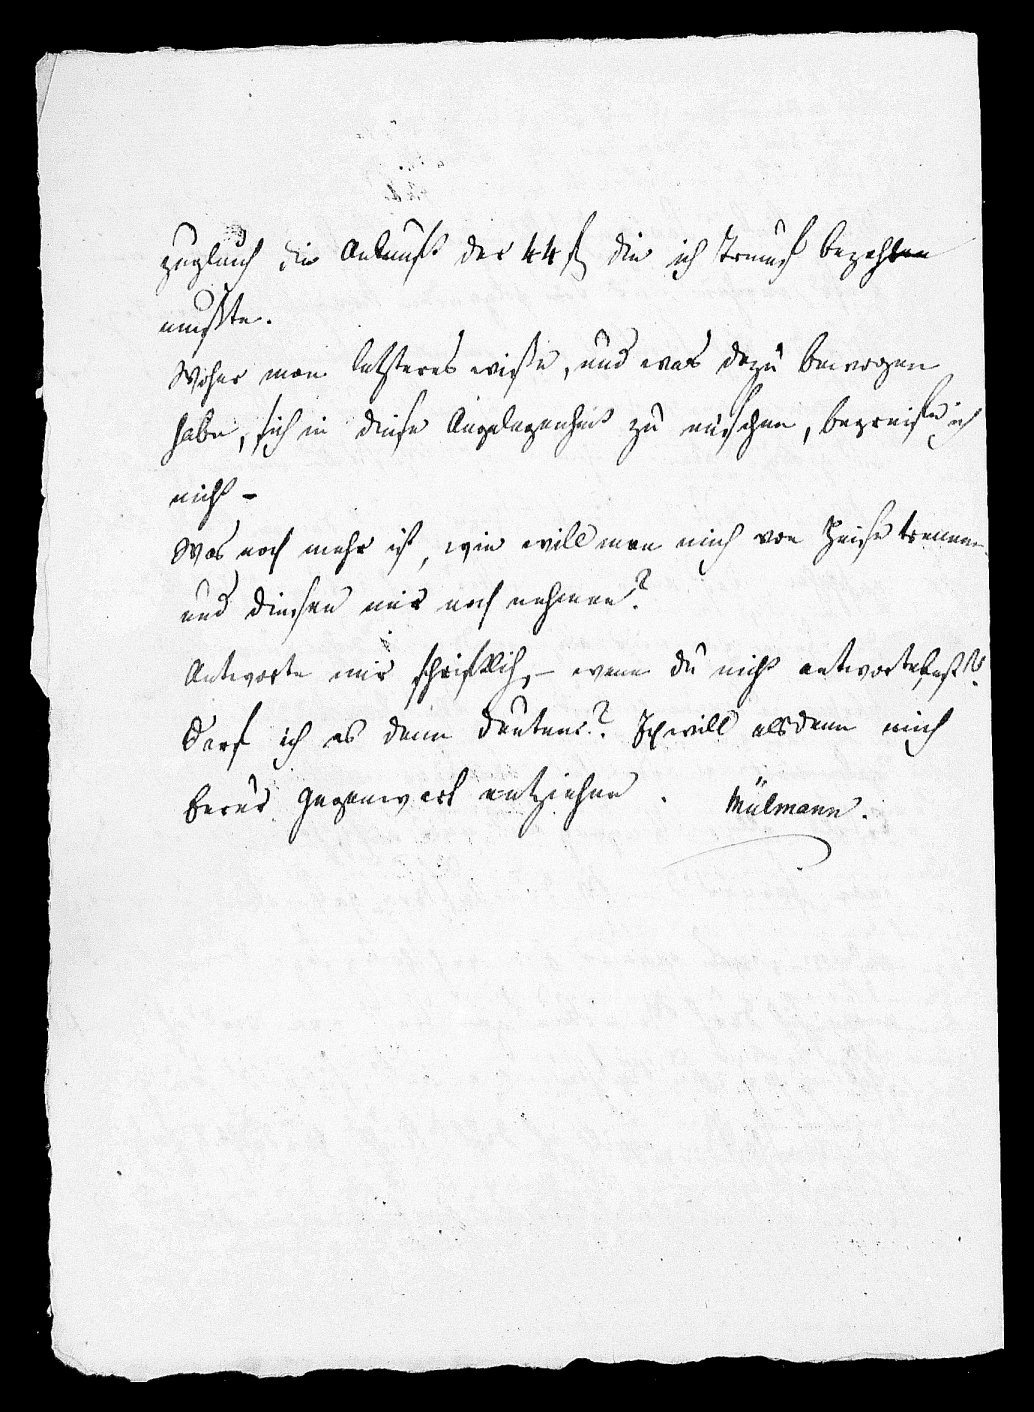 zugleich die Ankunft der 44 f die ich Trumpf bezahlen
mußte.
Woher man letzteres wiße, und was dazu bewogen
habe, sich in diese Angelegenheit zu mischen, begreife ich
nicht –
Was noch mehr ist, wie will man mich von trennen
und diesen mir noch nehmen?
Antworte mir schriftlich, – wenn du nicht antwortest
Darf ich es dann deuten? Ich will alsdann mich
Gegenwart entziehen. Mülmann.